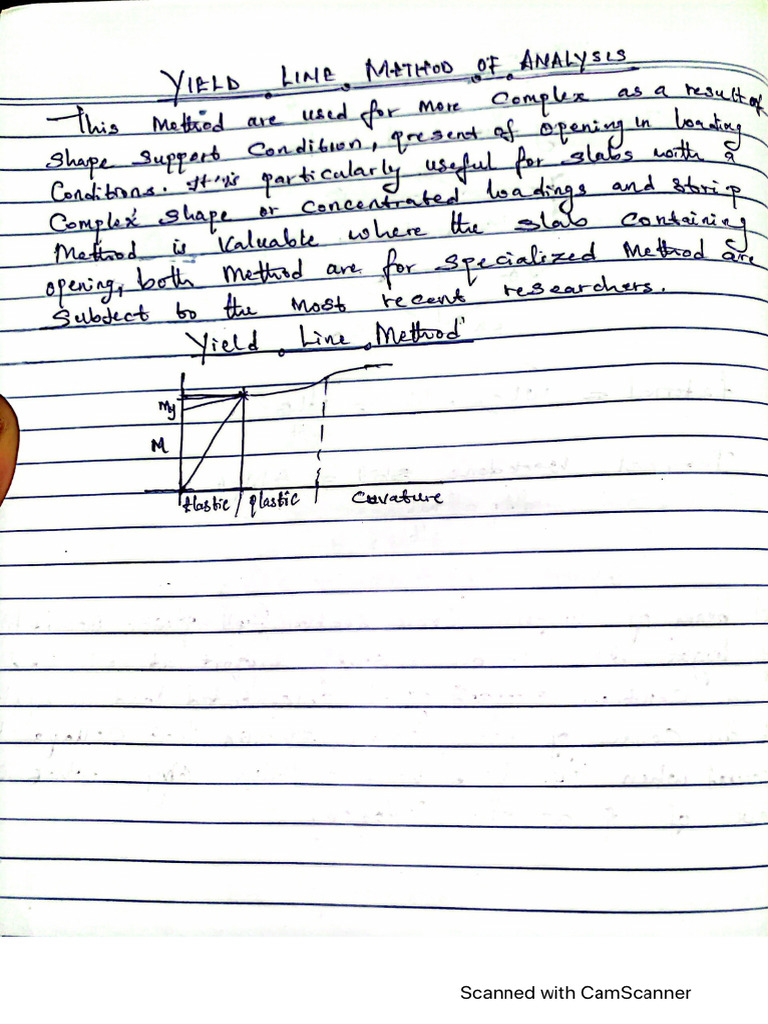 YIELD LINE METHOD OF ANALYSIS
This Method are used for more Complex as a result of
shape support Condition, present of opening in loading
Conditions. It is particularly useful for slabs with a
Complex shape or concentrated loadings and strip
Method is Valuable where the slab containing
opening, both method are for specialized Method are
Subject to the most recent researchers.
Yield Line Method
My
M
Elastic / plastic Cuvature
Scanned with CamScanner